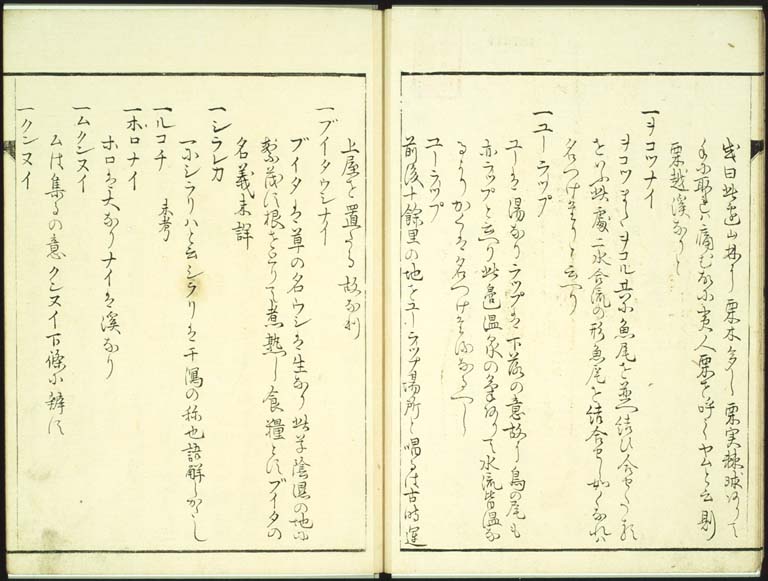 或曰此辺山林ニ栗木多し栗実棘球ありて
手ニ取れハ痛むゆへニ夷人栗を呼てヤムと云則
栗越渓なりと
一ヲコツナイ
ヲコツまたヲコル共ニ魚尾を並へ結ひ合せたる形
をいふ此処二水合流の形魚尾を結合せし如くなれハ
名つけたりと云り
一ユーラップ
ユーは湯なりラップは下落の意故ニ鳥の尾も
亦ラップと云り此辺温泉の気ありて水流皆温な
るよりかくは名つけたるなるへし
ユーラップ
前後十余里の地をユーラップ場所と唱るは古時運
上屋を置たる故なり
一ブイタウシナイ
ブイタは草の名ウシは生なり此草陰湿の地ニ
繁茂す根をとりて煮熟し食糧とすブイタの
名義未詳
一シラレカ
一ニシラリハと云シラリは干潟の称也語解しかたし
一ルコチ 未考
一ホロナイ
ホロは大なりナイは渓なり
一ムクンヌイ
ムは集るの意クンヌイ下條ニ辨す
一クンヌイ